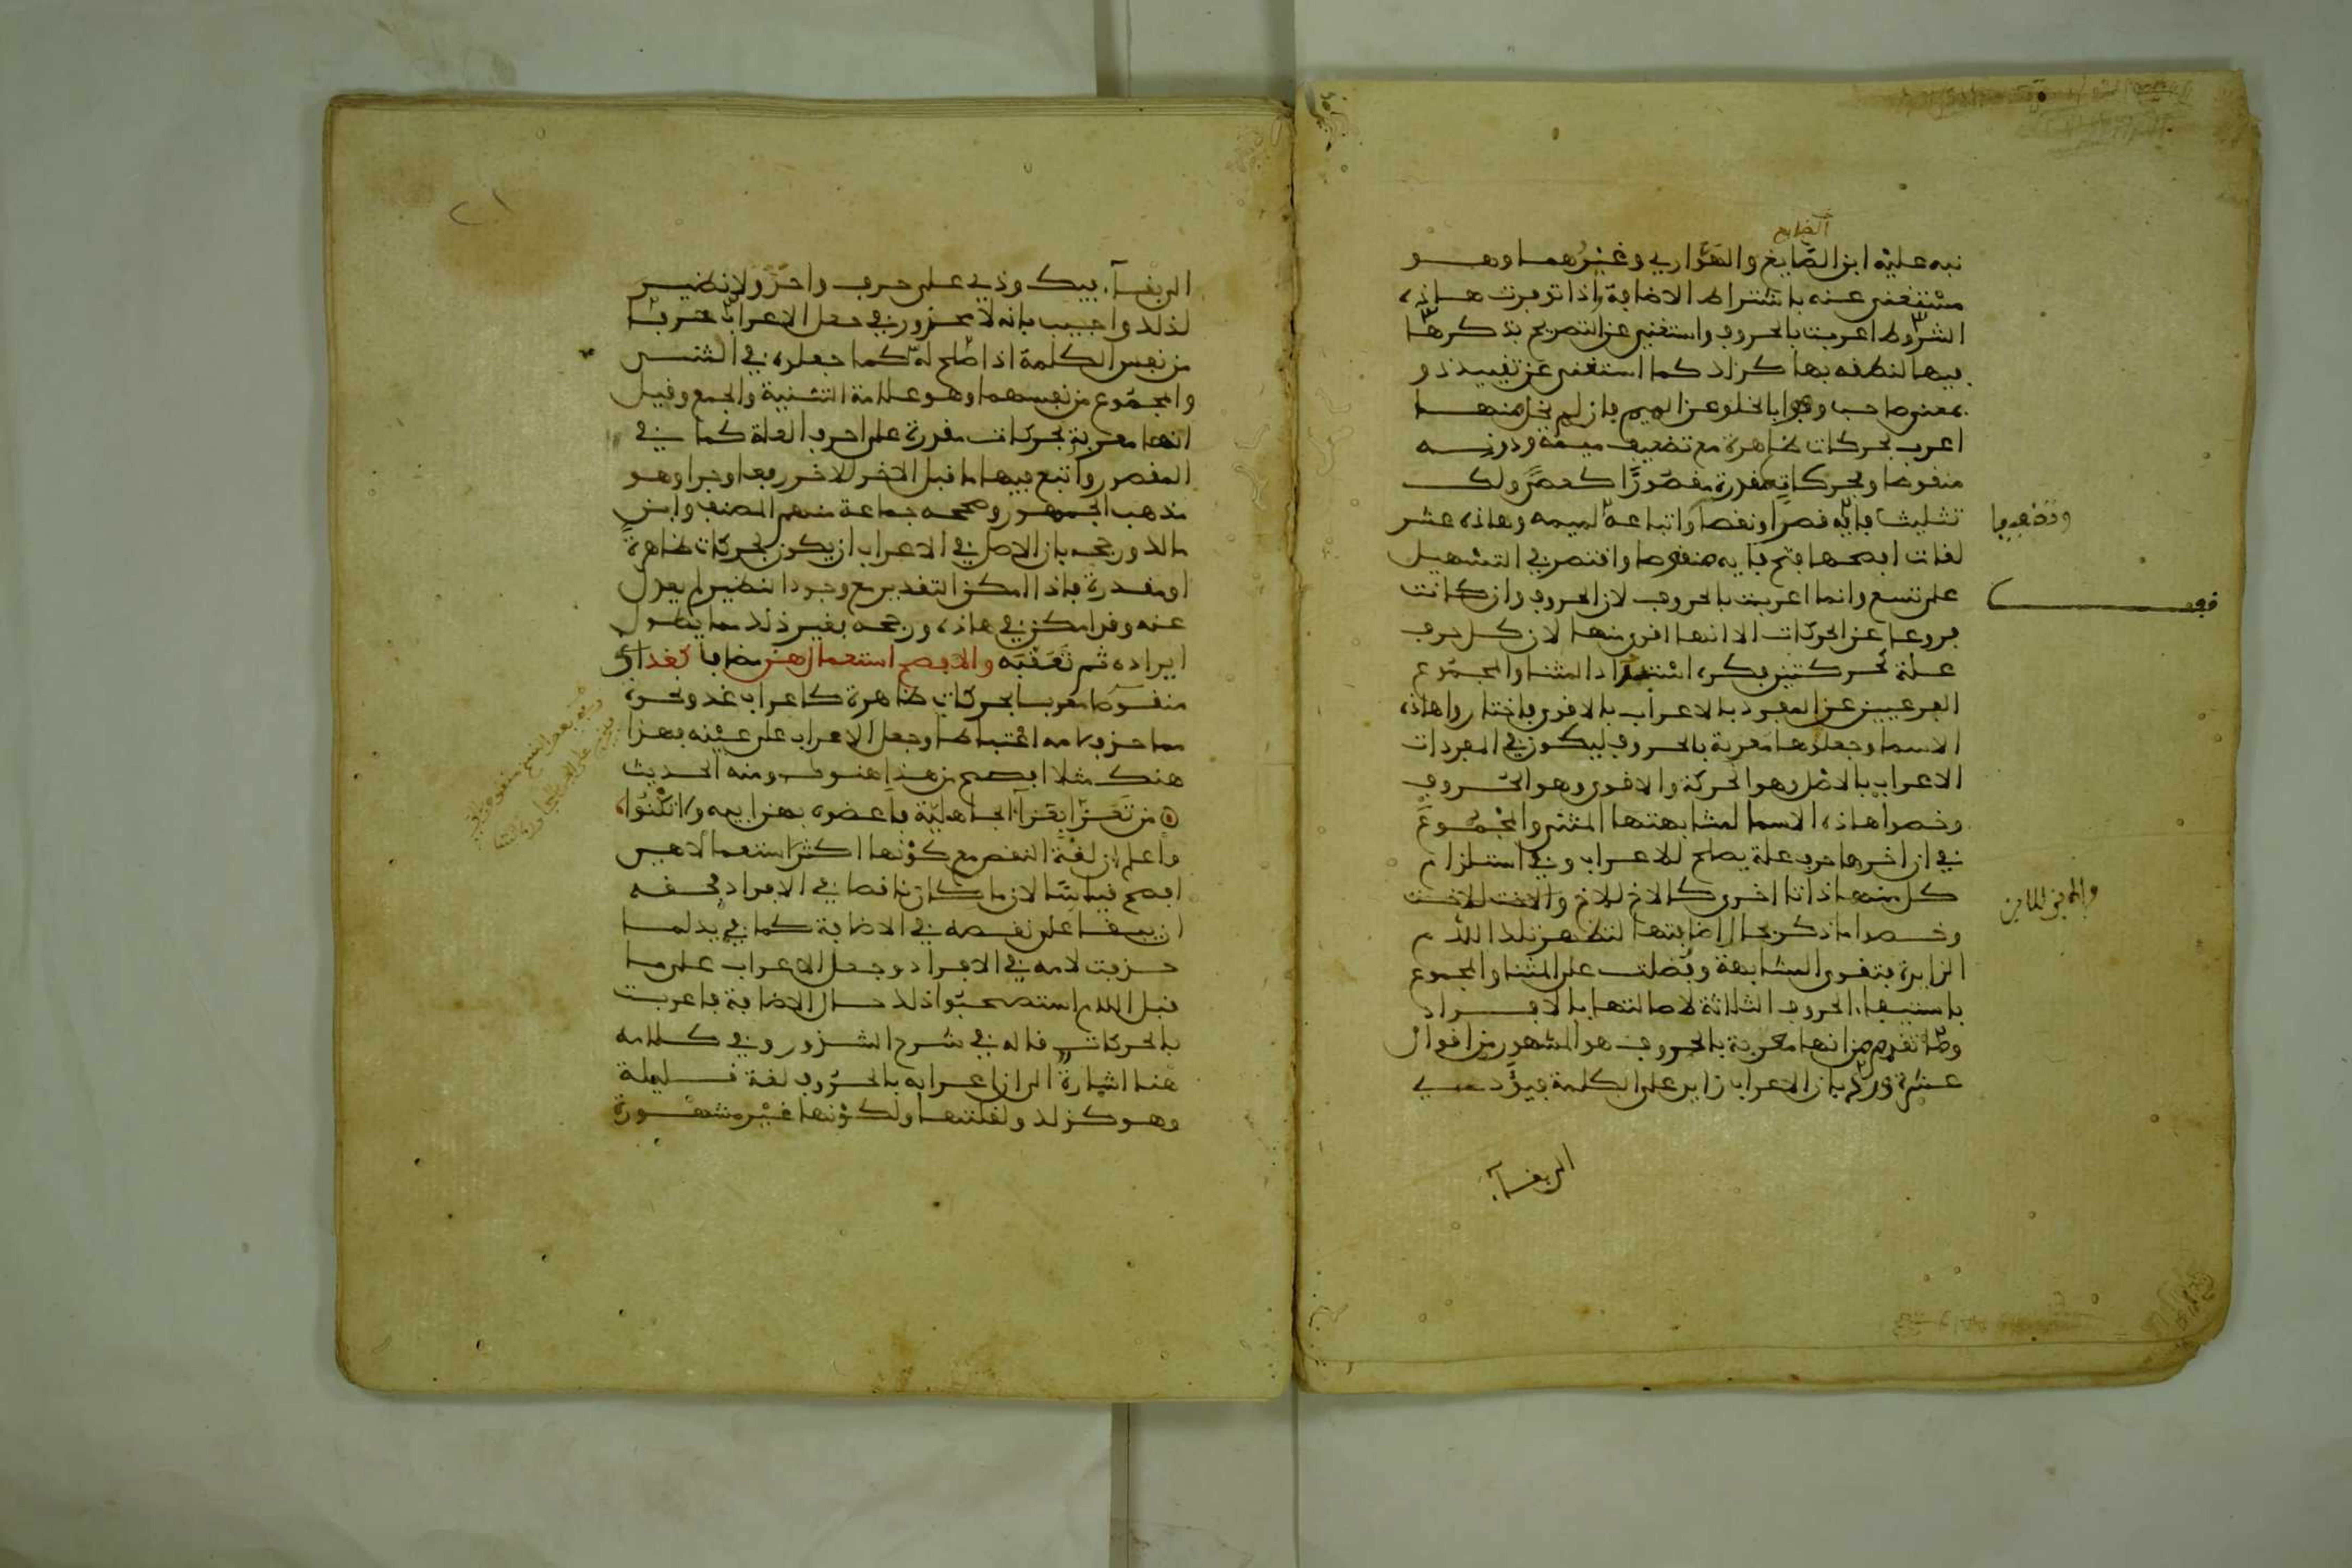 الضايع
نبه عليه ابن الصّايغ والهوّاري وغيرهما وهو
مستغنى عنه باشتراط الاضافة اذا توفرت هاذه
الشروط اعربت بالحروف واستغنى عن التصريح بذكرها
فيها لنطقه بها كذلك كما استغنى عن تقييد ذو
بمعنى صاحب وفوا بالخلو عن الميم فان لم يخل منها
اعرب بحركات ظاهرة مع تضعيف ميمه ودونه
منقوصا وبحركات مقدرة مقصورًا كعصًى ولك
تثليث فايه قصرا ونقصا واتباعه لميمه وهاذه عشر
لغات افصحها فتح فايه منقوصا واقتصر في التسهيل
على تسع وانما اعربت بالحروف لان الحروف وان كانت
فروعا عن الحركات الا انها اقوى منها لان كل حرف
علة كحركتين فكره استبداد المثنا والمجموع
الفرعيين عن المفرد بالاعراب بالاقوى فاختاروا هاذه
الاسما وجعلوها معربة بالحروف ليكون في المفردات
الاعراب بالاصل وهو الحركة والاقوى وهو الحروف
وخصوا هاذه الاسما لمشابهتها المثنى والمجموع
في ان اخرها حرف علة يصلح للاعراب وفي استلزام
كل منها ذاتا اخرى كالاخ للاخ والاخت للاخت
وخصوا ما ذكر بحال اضافتها لتظهر تلك اللام
الزايدة فتقوى المشابهة وفضلت على المثنا والمجموع
باستيفاء الحروف الثلاثة لاصالتها بالافراد
وما تقدم من انها معربة بالحروف هو المشهور من اقوال
عشرة ورد بان الاعراب زايد على الكلمة فيؤدي
الى بقاء
فيك وذي على حرف واحد ولا نظير
لذلك واجيب بانه لا محذور في جعل الاعراب حرفا
من نفس الكلمة اذا صلح له كما جعلوه في المثنى
والمجموع من نفسهما وهو علامة التثنية والجمع وقيل
انها معربة بحركات مقدرة على احرف العلة كما في
المقصور واتبع فيها ما قبل الاخر للاخر رفعا وجرا وهو
مذهب الجمهور وصححه جماعة منهم المصنف وابن
مالك ورجحه بان الاصل في الاعراب ان يكون بحركات ظاهرة
او مقدرة فاذا امكن التقدير مع وجود النظير لم يعدل
عنه وقد امكن في هاذه ورجحه بغير ذلك مما يطول
ايراده ثم تعقبه والافصح استعمال هن مضافا كغد اي
منقوصا معربا بحركات ظاهرة كاعراب غد ونحوه
مما حذف لامه اعتباطا وجعل الاعراب على عينه فهذا
هنك مثلا افصح من هذا هنوك ومنه الحديث
من تعزّا بعزاء الجاهليّة فاعضوه بهن ابيه ولا تكنوا
واعلم ان لغة النقص مع كونها اكثر استعمالا هي
افصح قياسا لان ما كان ناقصا في الافراد فحقه
ان يبقا على نقصه في الاضافة كما في يد لما
حذفت لامه في الافراد وجعل الاعراب على ما
قبل اللام استصحبوا ذلك حال الاضافة فاعربت
بالحركات قاله في شرح الشذور وفي كلامه
هنا اشارة الى ان اعرابه بالحروف لغة قليلة
وهو كذلك ولقلتها ولكونها غير مشهورة